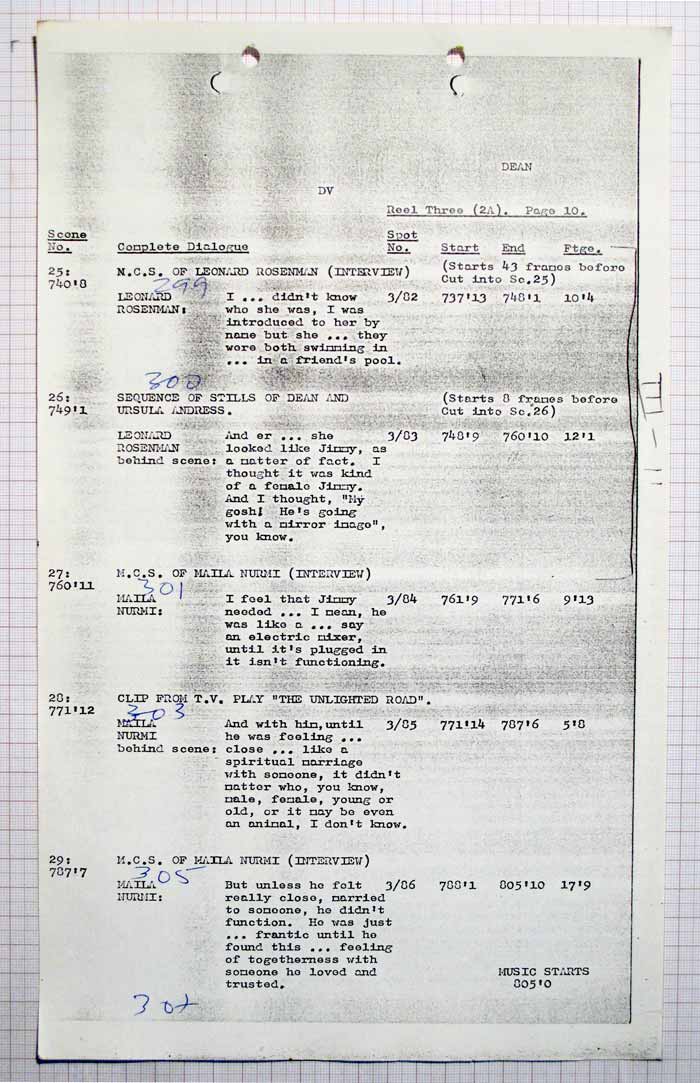 DEAN
DV
Reel Three (2A). Page 10.
Scene No. Complete Dialogue Spot No. Start End Ftge.
25: 740'8 M.C.S. OF LEONARD ROSENMAN (INTERVIEW) (Starts 43 frames before
Cut into Sc.25)
299
LEONARD I ... didn't know 3/82 737'13 748'1 10'4
ROSENMAN: who she was, I was
introduced to her by
name but she ... they
were both swimming in
... in a friend's pool.
300
26: SEQUENCE OF STILLS OF DEAN AND (Starts 8 frames before
749'1 URSULA ANDRESS. Cut into Sc.26)
LEONARD And er ... she 3/83 748'9 760'10 12'1
ROSENMAN looked like Jimmy, as
behind scene: a matter of fact. I
thought it was kind
of a female Jimmy.
And I thought, "My
gosh! He's going
with a mirror image",
you know.
III-1
27: M.C.S. OF MAILA NURMI (INTERVIEW)
760'11
301
MAILA I feel that Jimmy 3/84 761'9 771'6 9'13
NURMI: needed ... I mean, he
was like a ... say
an electric mixer,
until it's plugged in
it isn't functioning.
28: CLIP FROM T.V. PLAY "THE UNLIGHTED ROAD".
771'12
303
MAILA And with him,until 3/85 771'14 787'6 5'8
NURMI he was feeling ...
behind scene: close ... like a
spiritual marriage
with someone, it didn't
matter who, you know,
male, female, young or
old, or it may be even
an animal, I don't know.
29: M.C.S. OF MAILA NURMI (INTERVIEW)
787'7
305
MAILA But unless he felt 3/86 788'1 805'10 17'9
NURMI: really close, married
to someone, he didn't
function. He was just
... frantic until he
found this ... feeling
of togetherness with
someone he loved and MUSIC STARTS
trusted. 805'0